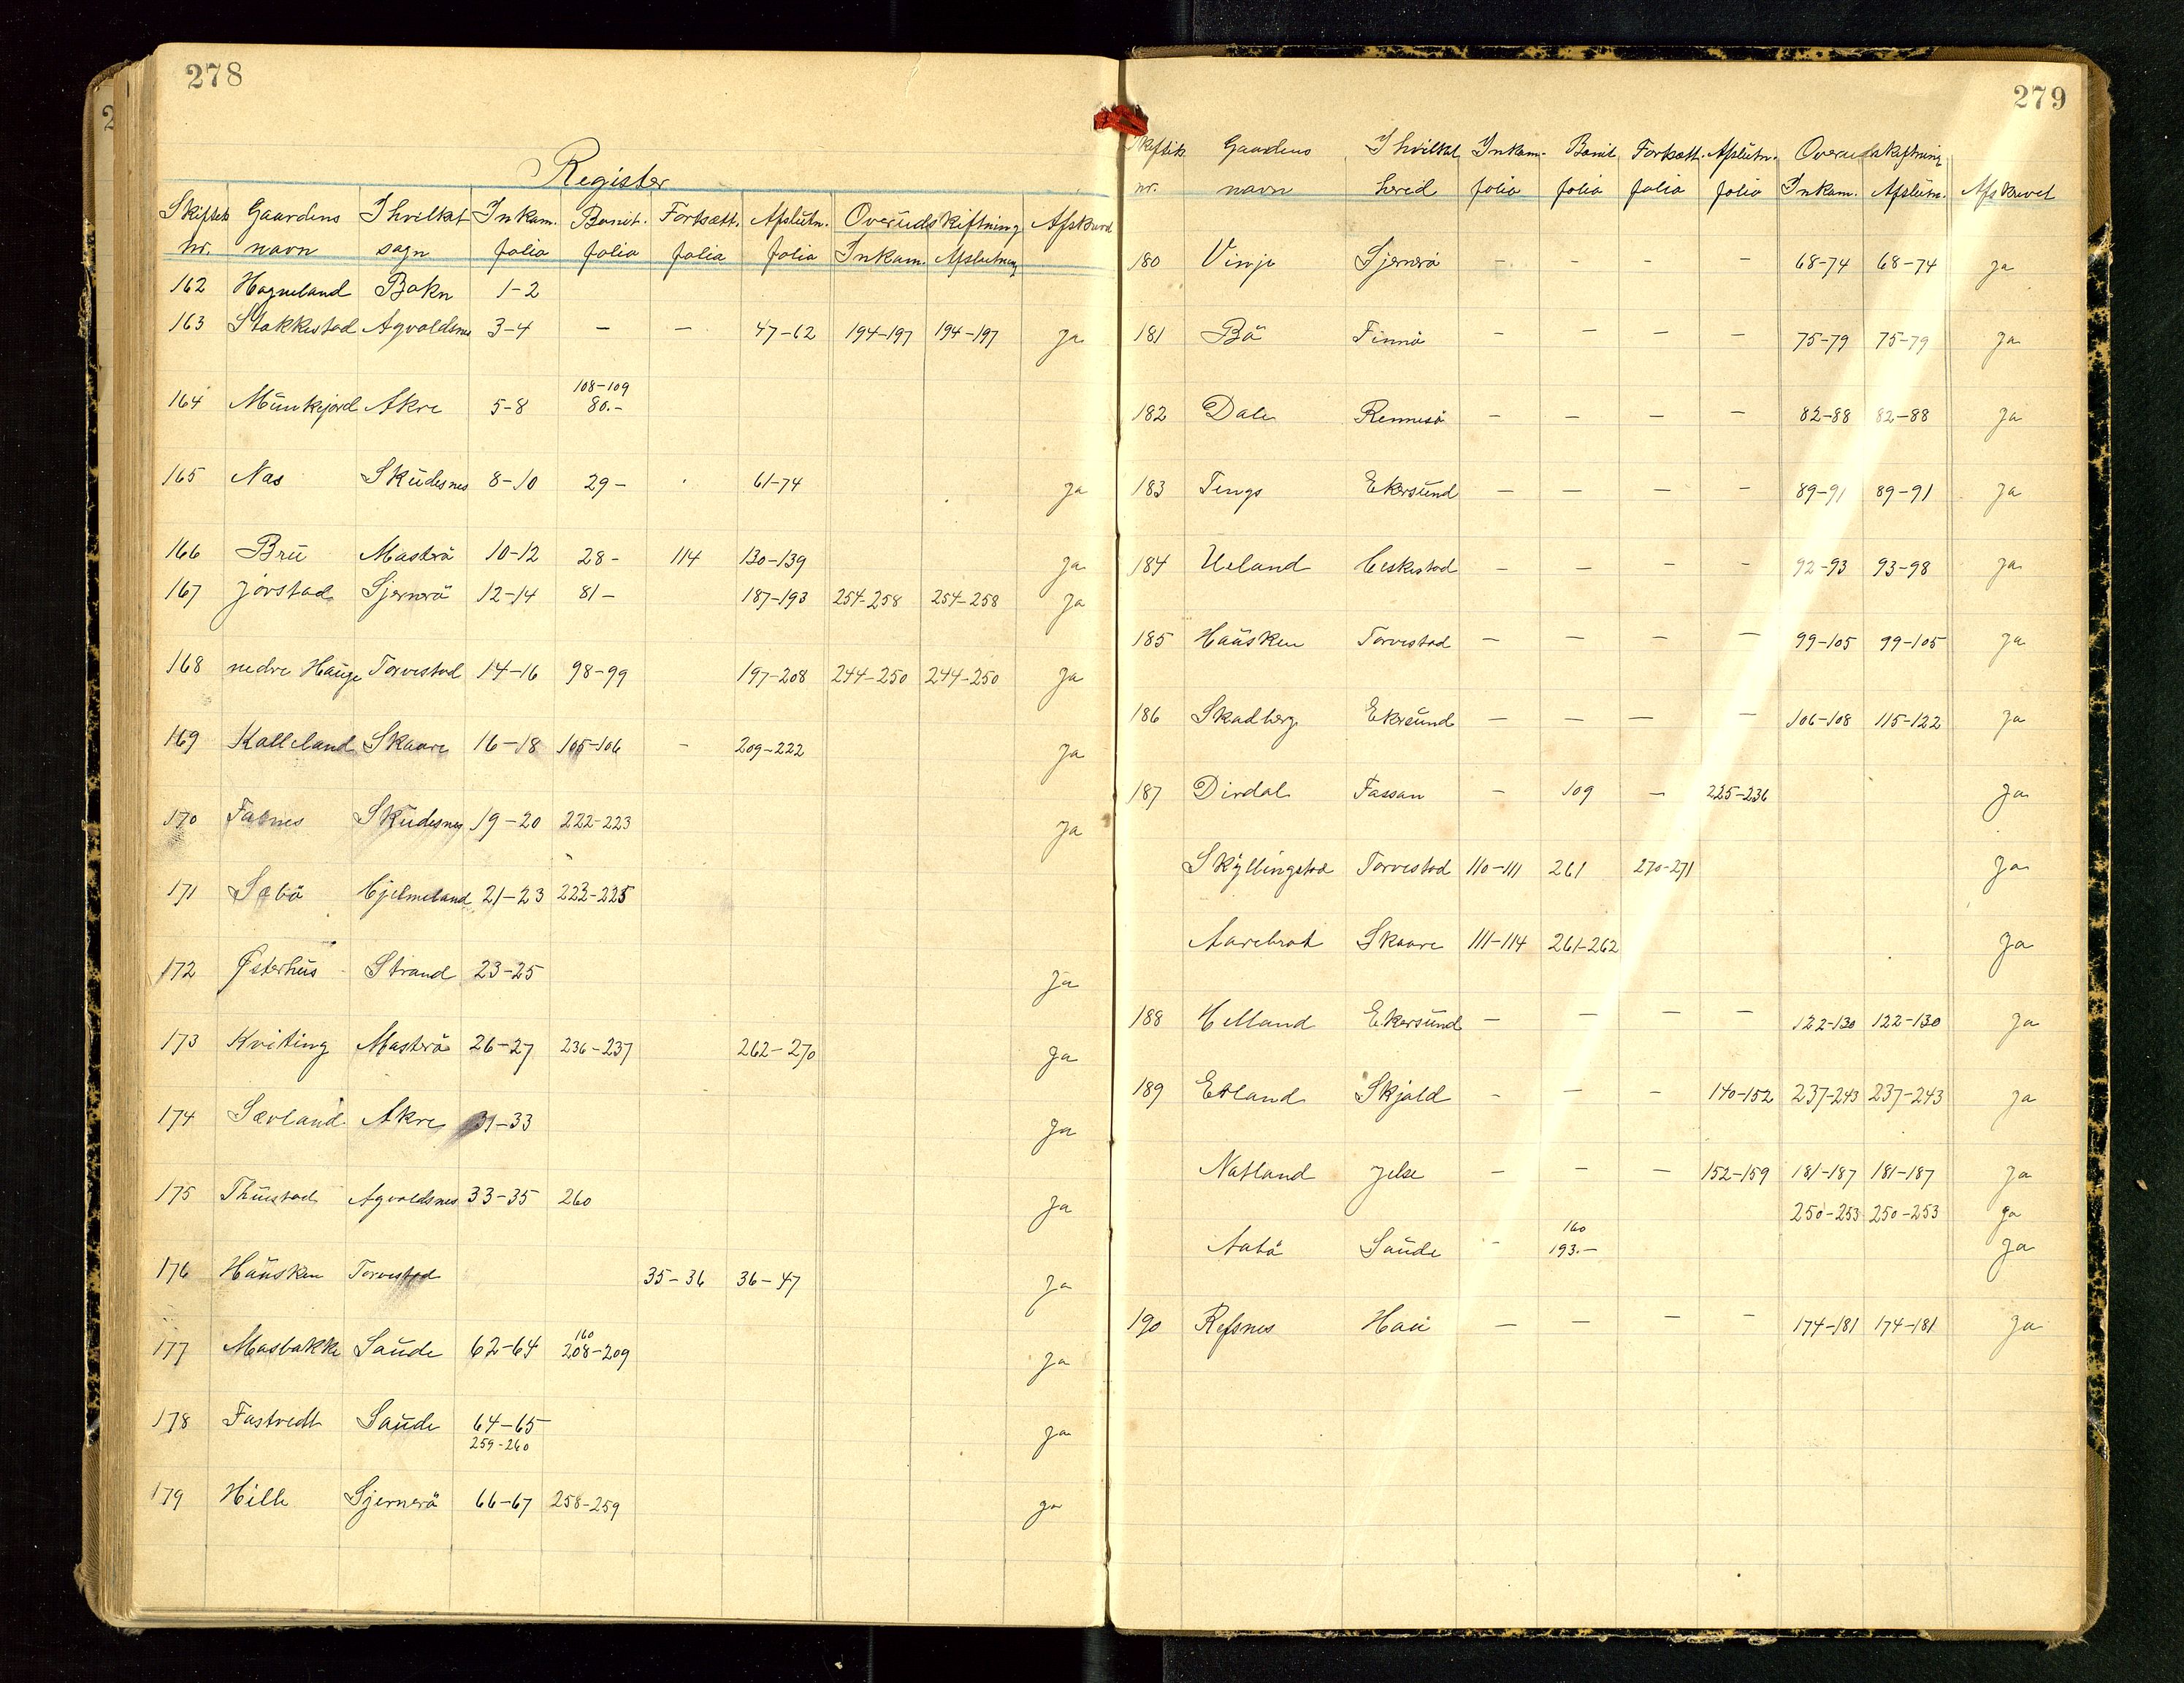 278
Register
Skiftets Gaardens I hvilket Inkam. Bonit. Fortsætt. Afslutn. Overudskiftning Afskrevet
nr. navn sogn folio folio folio folio Inkam. Afslutning
162 Hagneland Bokn 1-2
163 Stokkestad Agvaldsnes 3-4 - - 47-62 194-197 194-197 ja
108-109
164 Munkejord Akre 5-8 80.-
165 Nas Skudesnes 8-10 29- 61-74 ja
166 Bru Masterö 10-12 28- 114 130-139 ja
167 Jörstad Sjernerö 12-14 81- 187-193 254-258 254-258 ja
168 nedre Hauge Torvestad 14-16 98-99 197-208 244-250 244-250 ja
169 Kalleland Skaare 16-18 105-106 - 209-222 ja
170 Falnes Skudesnes 19-20 222-223 ja
171 Sebö Hjelmeland 21-23 223-225
172 Østerhus Strand 23-25 ja
173 Kviting Masterö 26-27 236-237 262-270 ja
174 Sævland Akre 31-33 ja
175 Thuestad Agvaldsnes 33-35 260 ja
176 Hausken Torvestad 35-36 36-47 ja
160
177 Masbakke Saude 62-64 208-209 ja
178 Fastvedt Saude 64-65 ja
259-260
179 Hille Sjernerö 66-67 258-259 ja
279
Skiftets Gaardens I hvilket Inkam- Bonit Fortsætt. Afslutn. Overudskiftning
nr. navn hered folio folio folio folio Inkam. Afslutn. Afskrevet
180 Vinje Sjernerö - - - - 68-74 68-74 ja
181 Bö Finnö - - - - 75-79 75-79 ja
182 Dale Rennesö - - - - 82-88 82-88 ja
183 Tengs Ekersund - - - - 89-91 89-91 ja
184 Ueland Heskestad - - - - 92-93 93-98 ja
185 Hausken Torvestad - - - - 99-105 99-105 ja
186 Skadberg Ekersund - - - - 106-108 115-122 ja
187 Dirdal Fossan - 109 - 225-236 ja
Skyllingstad Torvestad 110-111 261 270-271 ja
Aarebrot Skaare 111-114 261-262 ja
188 Helland Ekersund - - - - 122-130 122-130 ja
189 Etland Skjold - - - 140-152 237-243 237-243 ja
Natland Jelse - - - 152-159 181-187 181-187 ja
250-253 250-253 ja
160
Aabö Saude - 193.- ja
190 Refsnes Haa - - - - 174-181 174-181 ja